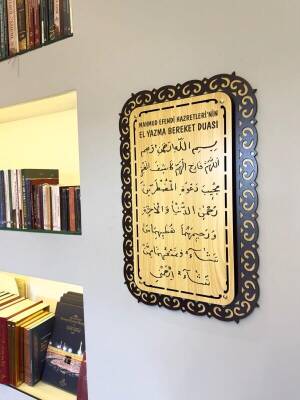 MAHMUD EFENDİ HAZRETLERİ'NİN
EL YAZMA BEREKET DUASI
بسم الله الرحمن الرحيم
اللهم فارج الهم كاشف الغم
مجيب دعوة المضطرين
رحمن الدنيا والآخرة
ورحيمهما تعطيهما من
تشاء وتمنعهما ممن
تشاء